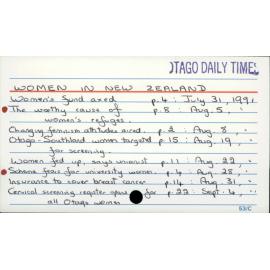 OTAGO DAILY TIMES
WOMEN IN NEW ZEALAND
Women's fund axed p.4 : July 31, 1991
The worthy cause of p.8 : Aug. 5, "
women's refuges.
Changing feminism attitudes aired. p.2 : Aug. 8, "
Otago-Southland women targeted p.15 : Aug. 19, "
for screening.
Women fed up, says unionist p.11 : Aug 22, "
Some fears for university women. p.4 : Aug. 28, "
Insurance to cover breast cancer p.14 : Aug 31, "
Cervical screening register opens for p.22 : Sept. 4, "
all Otago women
53/C